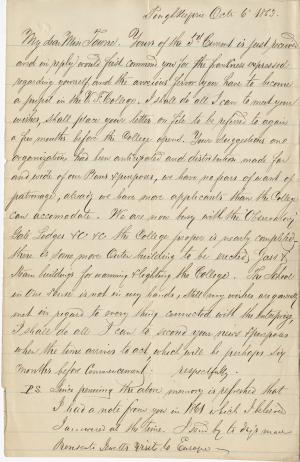 Poughkeepsie Octr 6th 1863.
My dear Miss Towne. Yours of the 3rd Current is just received
and in reply would first commend you for the frankness expressed
regarding yourself and the anxious fervor you have to become
a pupil in the V. F. College. I shall do all I can to meet your
wishes, shall place your letter on file to be referred to again
a few months before the College opens. Your suggestions are
organization has been anticipated and distribution made far
and wide of our Plans & purposes, we have no fears of want of
patronage, already we have more applicants than the College
can accomodate. We are now busy with the Observatory,
Gate Lodges &c &c the College proper is nearly completed
there is some more Outer building to be erected, Gas &
Steam buildings for warming & lighting the College. The School
in the House is not in my hands, still my wishes are generally
met in regard to every thing connected with the enterprise,
I shall do all I can to second your views & purposes
when the time arrives to act, which will be perhaps six
months before commencement. respectfully
P.S. Since penning the above memory is refreshed that
I had a note from you in 1861 which I believe
I answered at the time. I send by to days mail
visit to Europe